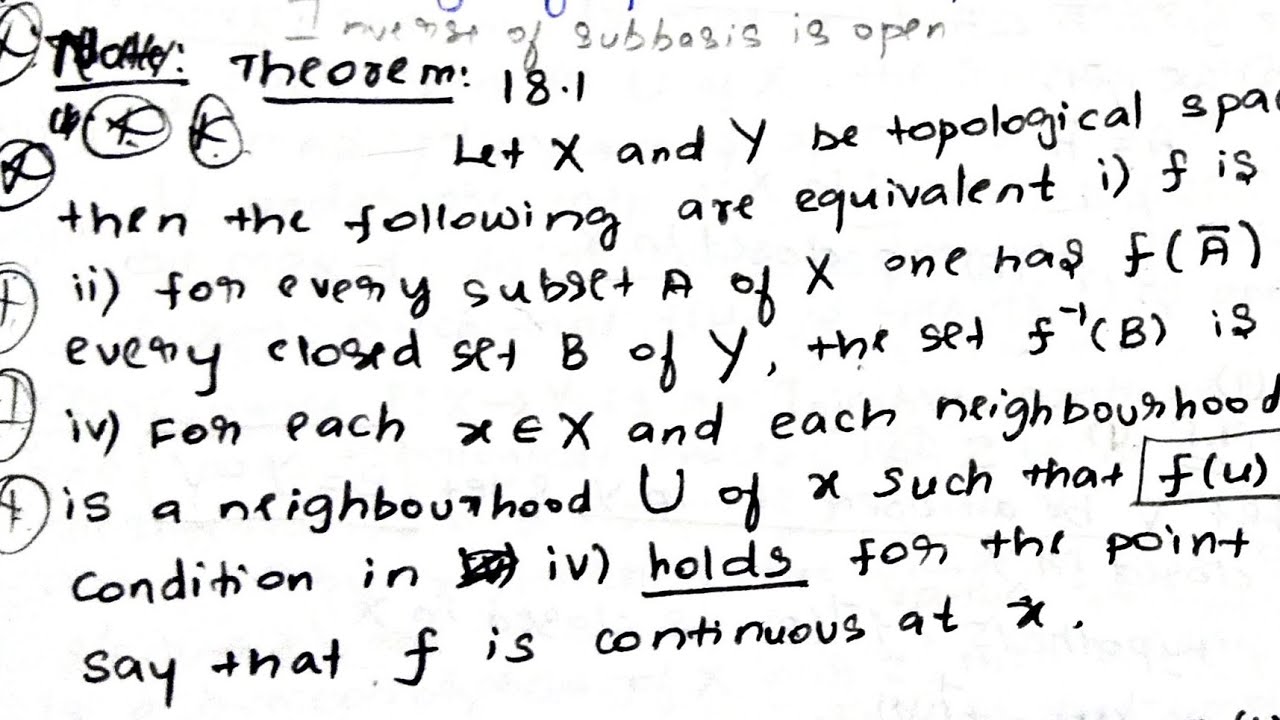 Inverse of subbasis is open
Theorem: 18.1
Let X and Y be topological spa
then the following are equivalent i) f is
ii) for every subset A of X one has f(A̅)
every closed set B of Y, the set f⁻¹(B) is
iv) For each x ∈ X and each neighbourhood
is a neighbourhood U of x such that f(u)
condition in iv) holds for the point
say that f is continuous at x.